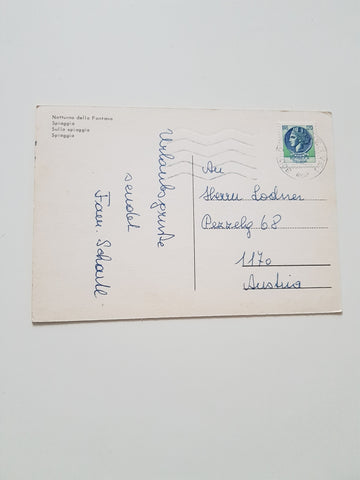 Notturno della Fontana
Spiaggia
Sulla spiaggia
Spiaggia
Urlaubsgrüße
sendet
Fam. Scharl.
An
Herrn Lodner
Pezzelg 68
1170
Austria